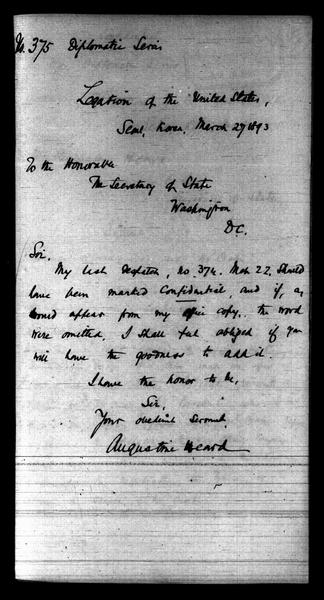 No. 375 Diplomatic Series
Legation of the United States,
Seoul, Korea, March 27 1893
To the Honorable
The Secretary of State
Washington
D.C.
Sir.
My last Despatch, No. 374. Mch 22. Should
have been marked Confidential, and if, as
would appear from my office copy, the word
were omitted, I shall feel obliged if you
will have the goodness to add it.
I have the honor to be,
Sir,
Your obedient Servant
Augustine Heard